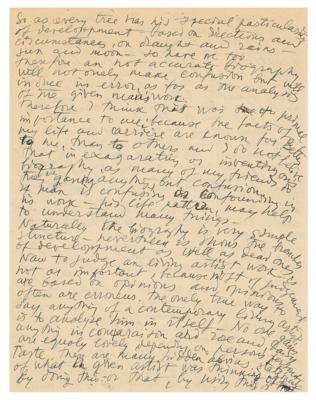 So as every tree has his special particularity
of development – based on directions and
circumstances, on draught and rains –
sun and moon – so have we too
therefore an not accurate biography
will not onely make confusion but will
induce in error, as far as the analysis
of the given man's work.
Therefore I think that was to prime
importance to me, because the facts of
my life and carrière are known far better
to me, than to others and I do not believe
that in exagarating or inventing one's
biography, as many of my friends do
the given
a man and confusion, is confounding in
his work – his life path, may help
to understand many things –
Naturally the biography is very simple
structure – nevertheless it shows the
of development as well as dead ones
Now to judge an living artist work is
not as important, because most of judgements
are based on opinions and opinions
often are erroneus. The onely true way to
say anything of a contemporary living artist
is to analyse him in itself – No one
anything in comparaison and rose and
are equaly lovely depending on persons
taste. There are many hidden
of what the given artist was thinking of
by doing this or that, by using this